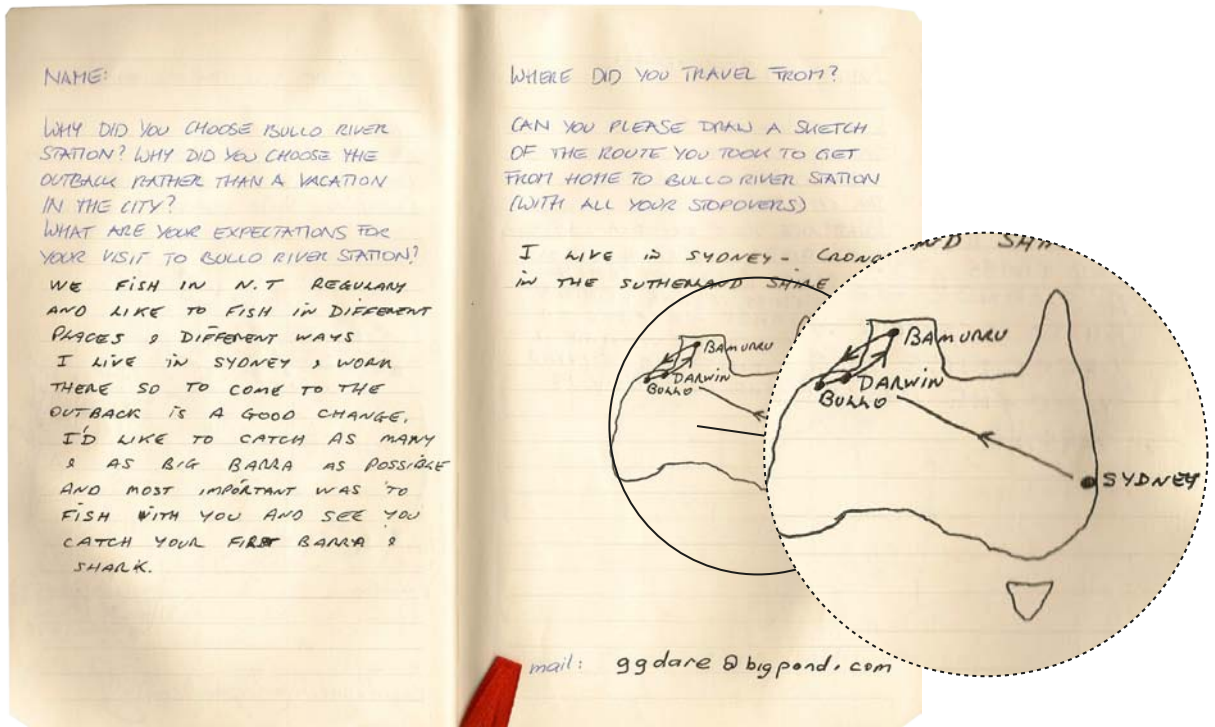 NAME:
WHY DID YOU CHOOSE BULLO RIVER
STATION? WHY DID YOU CHOOSE THE
OUTBACK RATHER THAN A VACATION
IN THE CITY?
WHAT ARE YOUR EXPECTATIONS FOR
YOUR VISIT TO BULLO RIVER STATION?
WE FISH IN N.T REGULARY
AND LIKE TO FISH IN DIFFERENT
PLACES & DIFFERENT WAYS
I LIVE IN SYDNEY & WORK
THERE SO TO COME TO THE
OUTBACK IS A GOOD CHANGE.
I'D LIKE TO CATCH AS MANY
& AS BIG BARRA AS POSSIBLE
AND MOST IMPORTANT WAS TO
FISH WITH YOU AND SEE YOU
CATCH YOUR FIRST BARRA &
SHARK.
WHERE DID YOU TRAVEL FROM?
CAN YOU PLEASE DRAW A SKETCH
OF THE ROUTE YOU TOOK TO GET
FROM HOME TO BULLO RIVER STATION
(WITH ALL YOUR STOPOVERS)
I LIVE IN SYDNEY - CRONU
IN THE SUTHERLAND SHIRE
BAMURRU
DARWIN
BULLO
ND SHI
BAMURRU
DARWIN
BULLO
SYDNEY
mail: ggdare@bigpond.com